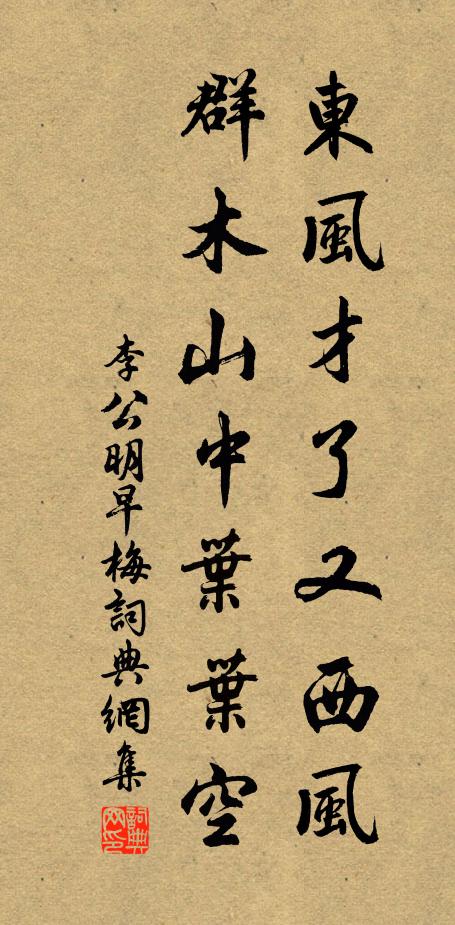 東風才了又西風
群木山中葉葉空
李公明早梅詞典網集
詞典
网印